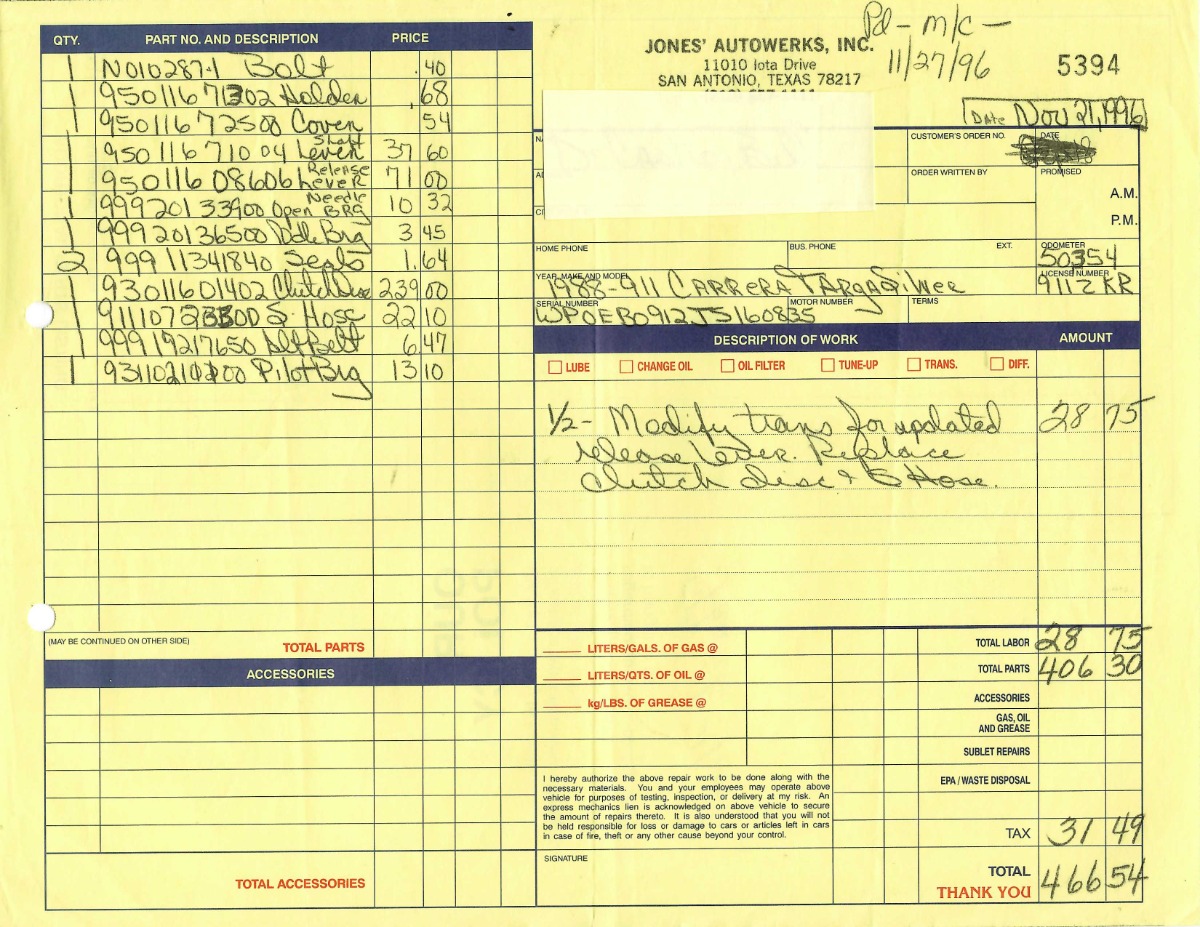 Pd - m/c -
11/27/96
JONES' AUTOWERKS, INC.
11010 Iota Drive
SAN ANTONIO, TEXAS 78217
5394
Date Nov 21, 1996
QTY. PART NO. AND DESCRIPTION PRICE
1 N0102871 Bolt .40
1 95011671302 Holder .68
1 95011672500 Cover 54
1 95011671004 Shaft Lever 37 60
1 95011608606 Release Lever 71 00
1 99920133900 Needle Open BRG 10 32
1 99920136500 Brg 3 45
2 99911341840 Seals 1.64
1 93011601402 Clutch Disc 239 00
1 S. Hose 22 10
1 99919217650 Alt Belt 6.47
1 Pilot Brg 13 10
(MAY BE CONTINUED ON OTHER SIDE) TOTAL PARTS
ACCESSORIES
TOTAL ACCESSORIES
CUSTOMER'S ORDER NO. DATE
ORDER WRITTEN BY PROMISED
A.M.
P.M.
HOME PHONE BUS. PHONE EXT. ODOMETER
50354
YEAR, MAKE AND MODEL LICENSE NUMBER
1988-911 CARRERA TARGA Silver 911Z KR
SERIAL NUMBER MOTOR NUMBER TERMS
WP0EB0912JS160835
DESCRIPTION OF WORK AMOUNT
LUBE CHANGE OIL OIL FILTER TUNE-UP TRANS. DIFF.
1/2 - Modify trans for updated 28 75
release lever. Replace
clutch disc & S Hose.
LITERS/GALS. OF GAS @ TOTAL LABOR 28 75
LITERS/QTS. OF OIL @ TOTAL PARTS 406 30
kg/LBS. OF GREASE @ ACCESSORIES
GAS, OIL
AND GREASE
SUBLET REPAIRS
EPA / WASTE DISPOSAL
I hereby authorize the above repair work to be done along with the
necessary materials. You and your employees may operate above
vehicle for purposes of testing, inspection, or delivery at my risk. An
express mechanics lien is acknowledged on above vehicle to secure
the amount of repairs thereto. It is also understood that you will not
be held responsible for loss or damage to cars or articles left in cars
in case of fire, theft or any other cause beyond your control.
TAX 31 49
SIGNATURE
TOTAL 466 54
THANK YOU